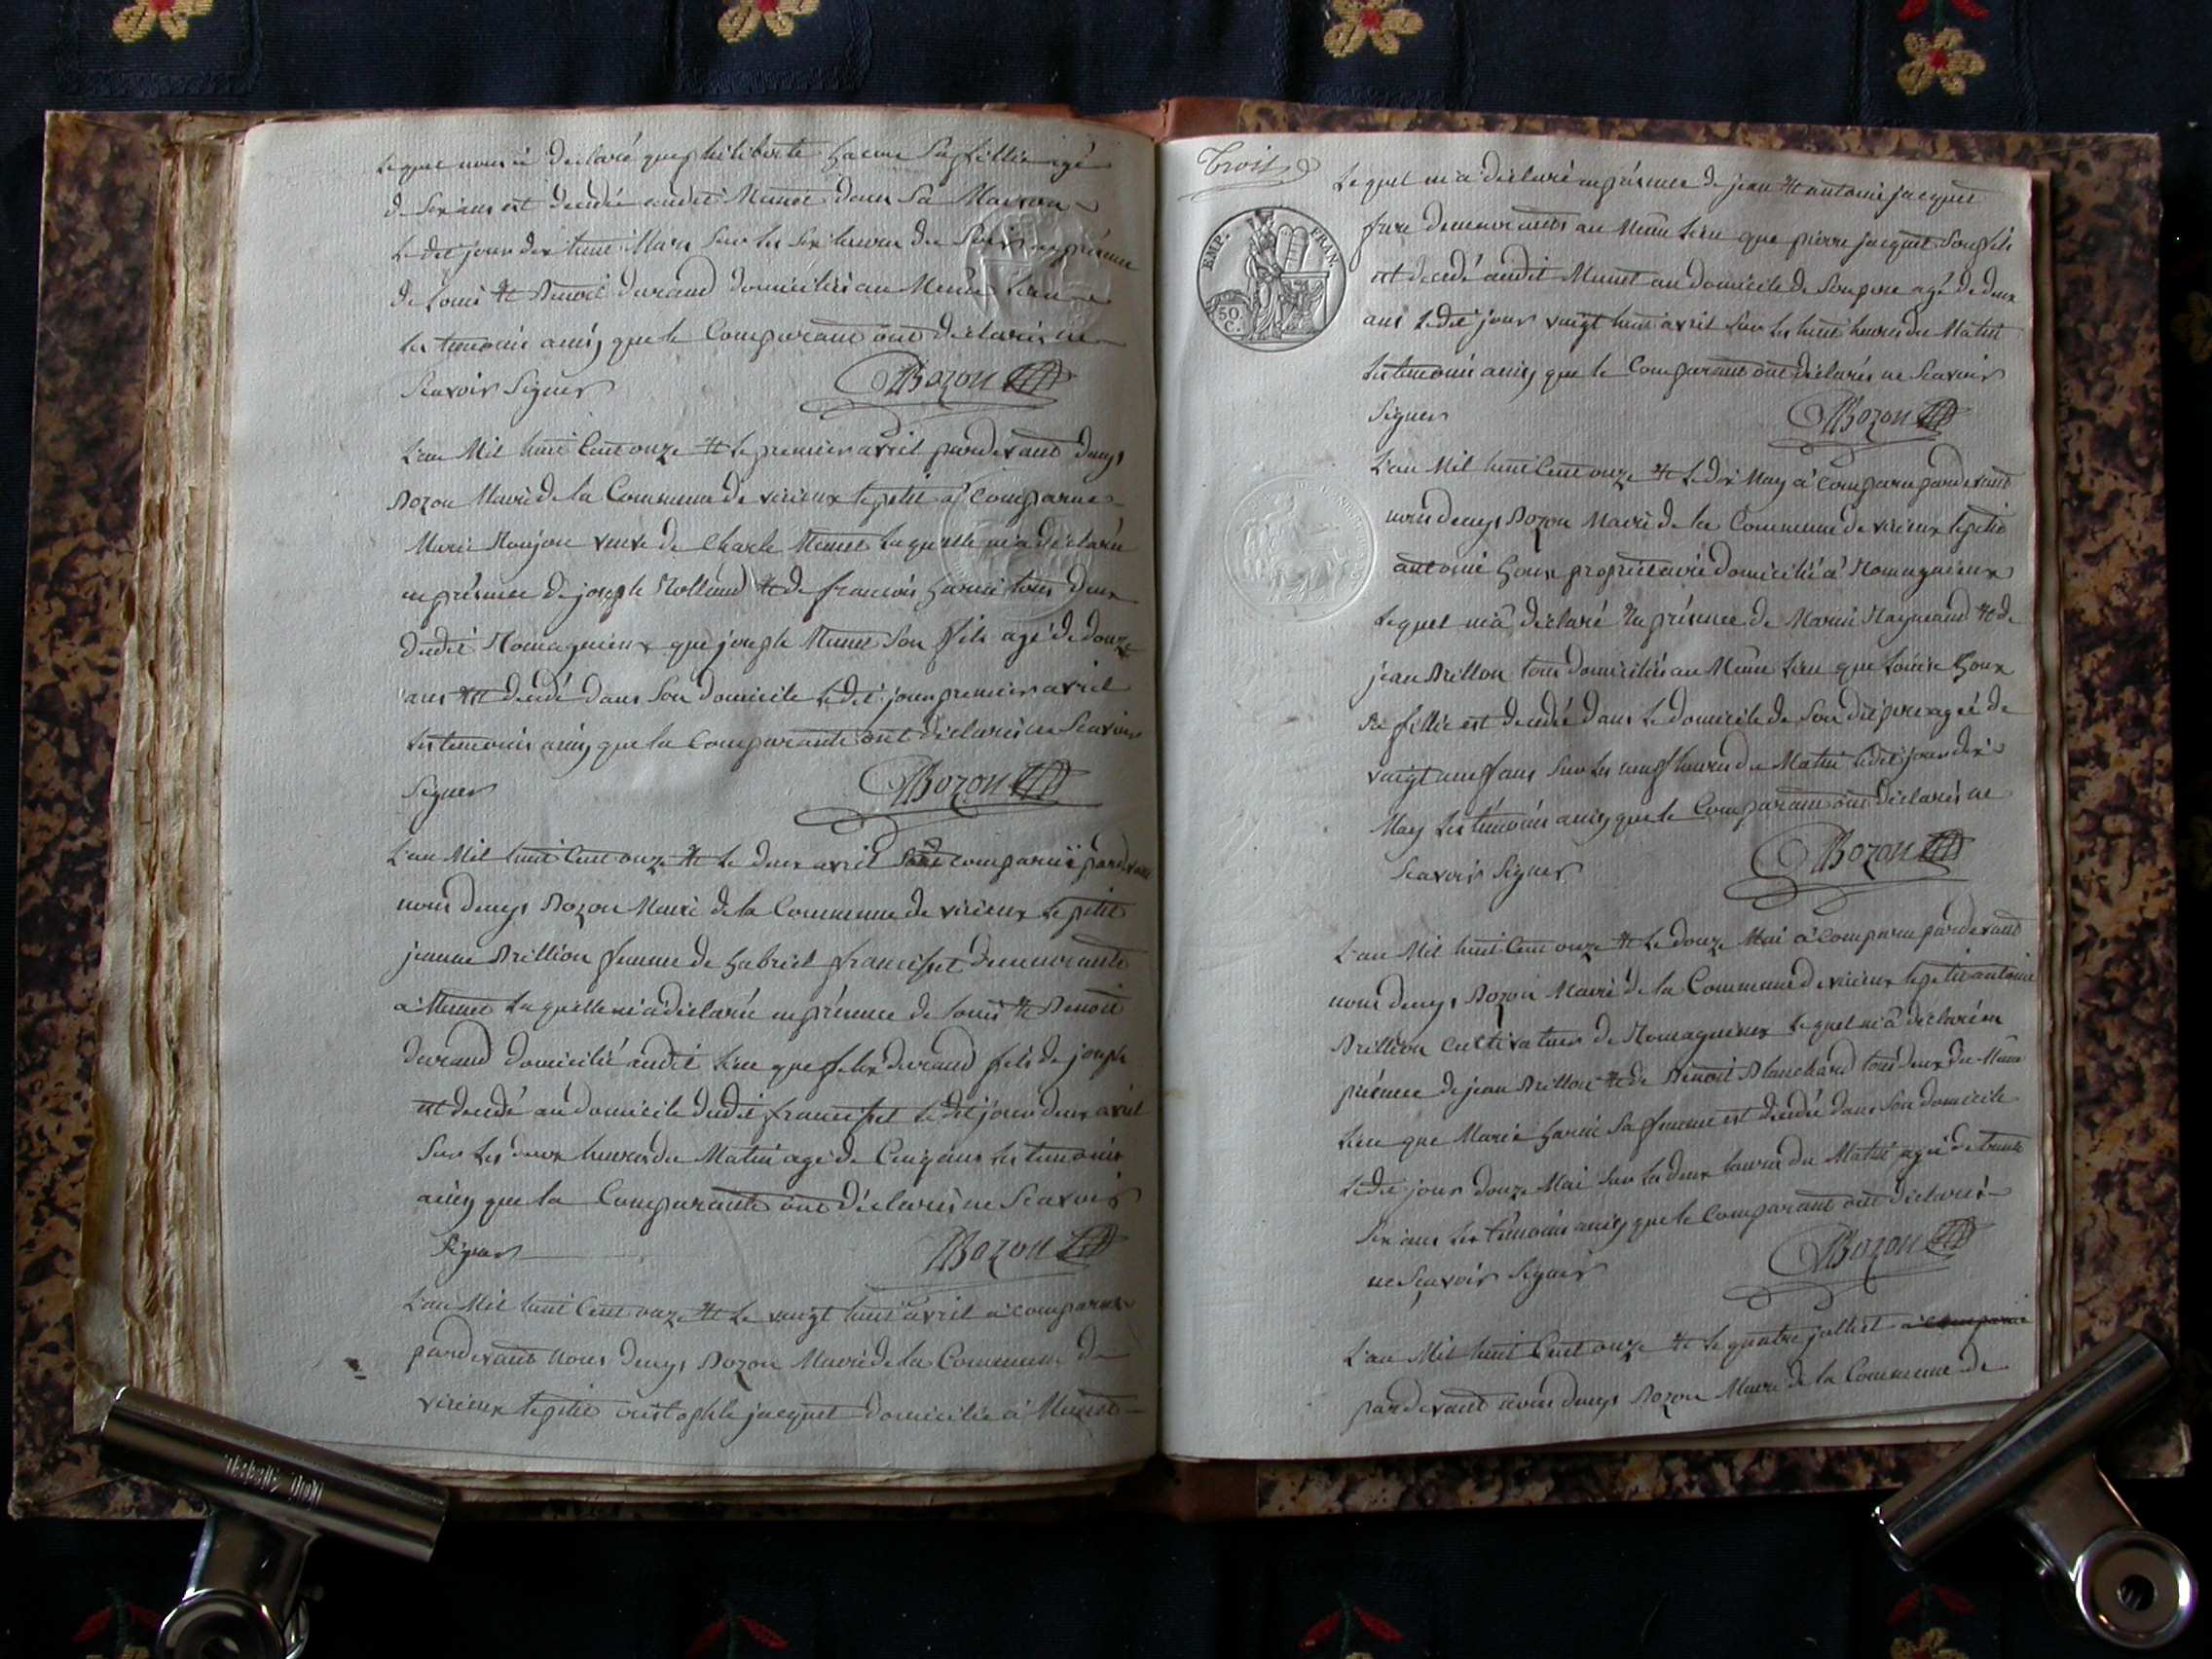 Lequel nous à déclaré que philiberte hacou Sa fillie agé
de Six ans est decedée audit Munet dans Sa Maison
Ledit jour dix huit Mars Sur les Six heures du Soir en présence
de Louis et Benoit durand domiciliés au Même Lieu
Les temoins ainsy que le Comparant ont déclarés ne
Scavoir Signer
DBozon
L'an Mil huit Cent onze et le premier avril pardevant denys
Bozon Maire de la Commune de virieux le petit a Comparue
Marie veuve de Charle Munet Laquelle m'a déclarée
en présence de joseph Rolland et de francois tous deux
dudit Romagnieux que joseph Munet Son fils agé de douze
ans est decedé dans Son domicile Ledit jour premier avril
Les temoins ainsy que la Comparante ont déclarés ne Scavoir
Signer
DBozon
L'an Mil huit Cent onze et le deux avril comparüe pardevant
nous denys Bozon Maire de la Commune de virieux Le petit
jeanne Brillion femme de Gabriel francisset demeurante
à Munet Laquelle m'a déclarée en présence de Louis et Benoit
durand domicilié audit Lieu que felix durand fils de joseph
est decedé au domicile dudit francisset Ledit jour deux avril
Sur Les deux heures du Matin agé de Cinq ans Les temoins
ainsy que la Comparante ont déclarés ne Scavoir
Signer
DBozon
L'an Mil huit Cent onze et Le vingt huit avril à Comparu
pardevant nous denys Bozon Maire de la Commune de
virieux le petit cristophle jacquet domicilié à Munet
Trois
EMP. FRAN.
50. C.
Lequel m'a déclaré en présence de jean et antoine jacquet
frere demeurants au Même Lieu que pierre jacquet Son fils
est decedé audit Munet au domicile de Son pere agé de deux
ans Ledit jour vingt huit avril Sur les huit heures du Matin
Les temoins ainsy que le Comparant ont déclarés ne Scavoir
Signer
DBozon
L'an Mil huit Cent onze et Le dix May à Comparu pardevant
nous denys Bozon Maire de la Commune de virieux le petit
antoine Goux propriétaire domicilié à Romagnieux
Lequel m'a déclaré En présence de Marie et de
jean Brillon tous domiciliés au Même Lieu que Goux
Sa fillie est decedée dans Le domicile de Son dit pere agée de
vingt neuf ans Sur les neuf heures du Matin Ledit jour dix
May Les témoins ainsy que le Comparant ont déclarés ne
Scavoir Signer
DBozon
L'an Mil huit Cent onze et Le douze Mai à Comparu pardevant
nous denys Bozon Maire de la Commune de virieux le petit antoine
Brillion Cultivateur de Romagnieux Lequel m'a déclaré en
présence de jean Brillon et de Benoit Blanchard tous deux du Même
Lieu que Marie Sa femme est decedée dans Son domicile
Ledit jour douze Mai Sur Les deux heures du Matin agée de trente
Six ans Les témoins ainsy que le Comparant ont déclarés
ne Sçavoir Signer
DBozon
L'an Mil huit Cent onze et Le quatre julliet à Comparu
pardevant nous denys Bozon Maire de la Commune de